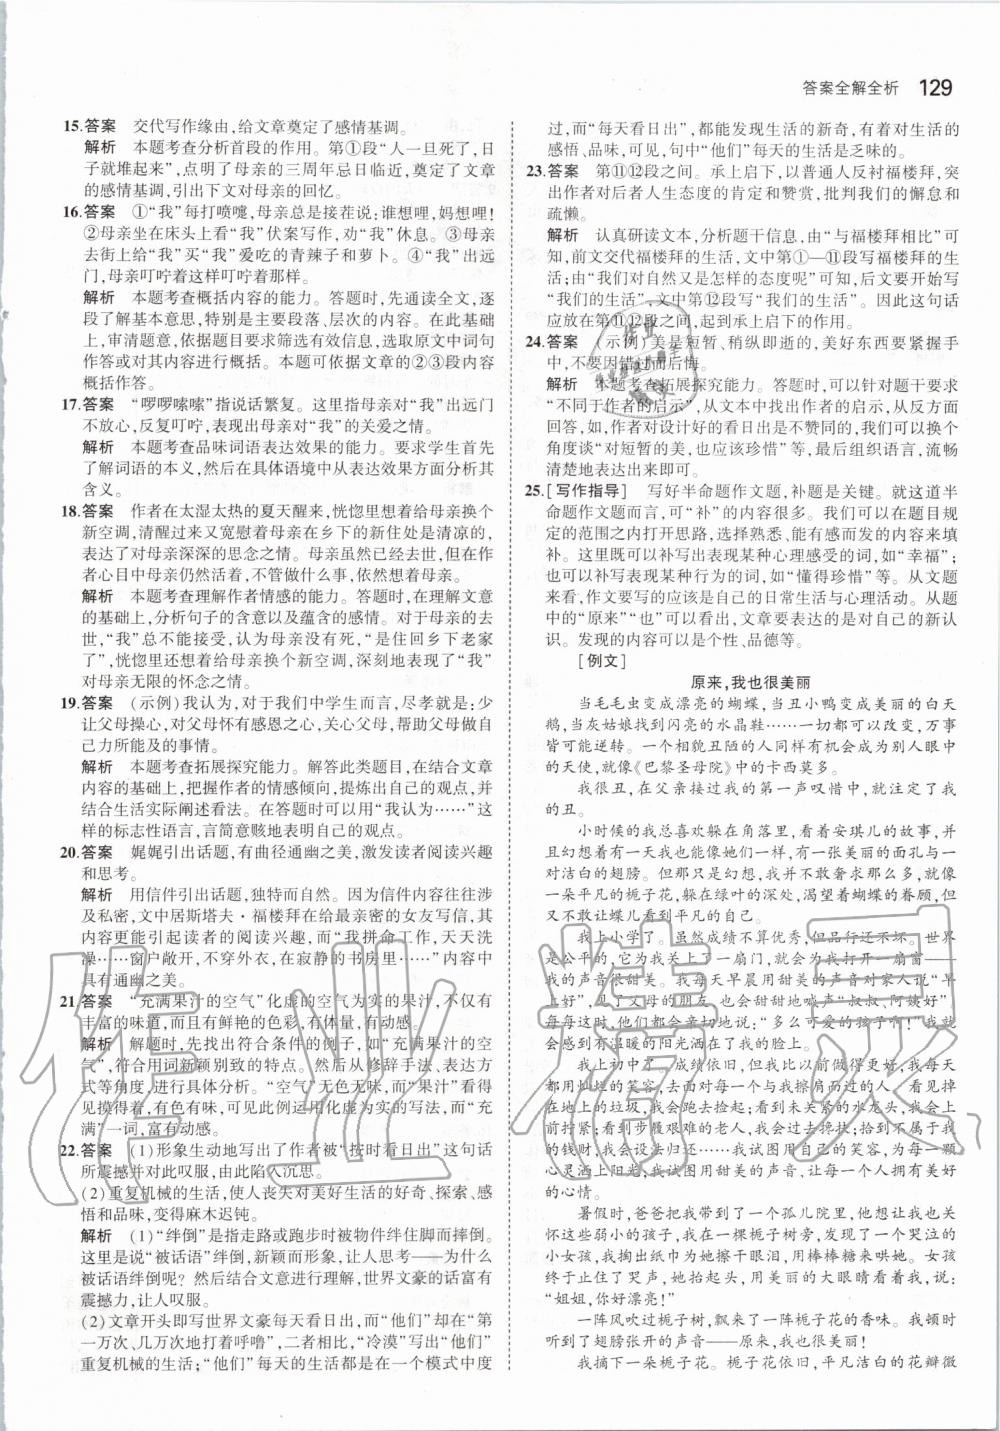 答案全解全析 129
15.答案 交代写作缘由,给文章奠定了感情基调。
解析 本题考查分析首段的作用。第①段“人一旦死了,日
子就堆起来”,点明了母亲的三周年忌日临近,奠定了文章
的感情基调,引出下文对母亲的回忆。
16.答案 ①“我”每打喷嚏,母亲总是接茬说:谁想哩,妈想哩!
②母亲坐在床头上看“我”伏案写作,劝“我”休息。③母亲
去街上给“我”买“我”爱吃的青辣子和萝卜。④“我”出远
门,母亲叮咛着叮咛着那样。
解析 本题考查概括内容的能力。答题时,先通读全文,逐
段了解基本意思,特别是主要段落、层次的内容。在此基础
上,审清题意,依据题干要求筛选有效信息,选取原文中词句
作答或对其内容进行概括。本题可依据文章的②③段内容
概括作答。
17.答案 “啰啰嗦嗦”指说话繁复。这里指母亲对“我”出远门
不放心,反复叮咛,表现出母亲对“我”的关爱之情。
解析 本题考查品味词语表达效果的能力。要求学生首先
了解词语的本义,然后在具体语境中从表达效果方面分析其
含义。
18.答案 作者在太湿太热的夏天醒来,恍惚里想着给母亲换个
新空调,清醒过来又宽慰着母亲在乡下的新住处是清凉的,
表达了对母亲深深的思念之情。母亲虽然已经去世,但在作
者心目中母亲仍然活着,不管做什么事,依然想着母亲。
解析 本题考查理解作者情感的能力。答题时,在理解文意
的基础上,分析句子的含意以及蕴含的感情。对于母亲的去
世,“我”总不能接受,认为母亲没有死,“是住回乡下老家
了”,恍惚里还想着给母亲换个新空调,深刻地表现了“我”
对母亲无限的怀念之情。
19.答案 (示例)我认为,对于我们中学生而言,尽孝就是:少
让父母操心,对父母怀有感恩之心,关心父母,帮助父母做自
己力所能及的事情。
解析 本题考查拓展探究能力。解答此类题目,在结合文章
内容的基础上,把握作者的情感倾向,提炼出自己的观点,并
结合生活实际阐述看法。在答题时可以用“我认为……”这
样的标志性语言,言简意赅地表明自己的观点。
20.答案 娓娓引出话题,有曲径通幽之美,激发读者阅读兴趣
和思考。
解析 用信件引出话题,独特而自然。因为信件内容往往涉
及私密,文中居斯塔夫·福楼拜在给最亲密的女友写信,其
内容更能引起读者的阅读兴趣,而“我拼命工作,天天洗
澡……窗户敞开,不穿外衣,在寂静的书房里……”内容中
具有通幽之美。
21.答案 “充满果汁的空气”化虚的空气为实的果汁,不仅有
丰富的味道,而且有鲜艳的色彩,有体量,有动感。
解析 解题时,先找出符合条件的例子,如“充满果汁的空
气”,符合用词新颖别致的特点。然后从修辞手法、表达方
式等角度进行具体分析。“空气”无色无味,而“果汁”看得
见,摸得着,有色有味,从此例可以例见运用化虚为实的写法,而“充
满”一词,富有动感。
22.答案 (1)形象生动地写出了作者被“按时看日出”这句话
所震撼并对此叹服,由此陷入沉思。
(2)重复机械的生活,使人丧失对美好生活的好奇、探索、感
悟和品味,变得麻木迟钝。
解析 (1)“绊倒”是指走路或跑步时被物件绊住脚而摔倒。
这里是说“被话语”绊倒,新颖而形象,让人思考——为什么
被话语绊倒呢?然后结合文意进行理解,世界文豪的话富有
震撼力,让人叹服。
(2)文章开头即写世界文豪每天看日出,而“他们”却在“第
一万次、几万次地打着呼噜”,二者相比,“冷漠”写出“他们”
重复机械的生活;“他们”每天的生活都是在一个模式中度
过,而“每天看日出”,都能发现生活的新奇,有着对生活的
感悟、品味,可见,句中“他们”每天的生活是乏味的。
23.答案 第⑪⑫段之间。承上启下,以普通人反衬福楼拜,突
出作者对后者人生态度的肯定和赞赏,批判我们的懈怠和
疏懒。
解析 认真研读文本,分析题干信息,由“与福楼拜相比”可
知,前文交代福楼拜的生活,文中第①—⑪段写福楼拜的生
活;由“我们对自然又是怎样的态度呢”可知,后文要开始写
“我们的生活”,文中第⑫段写“我们的生活”。因此这句话
应放在第⑪⑫段之间,起到承上启下的作用。
24.答案 (示例)美是短暂、稍纵即逝的,美好东西要紧握手
中,不要因错过而后悔。
解析 本题考查拓展探究能力。答题时,可以针对题干要求
“不同于作者的启示”,从文本中找出作者的启示,从反方面
回答,如,作者对设计好的看日出是不赞同的,我们可以换个
角度谈“对短暂的美,也应该珍惜”等,最后组织语言,流畅
清楚地表达出来即可。
25.[写作指导] 写好半命题作文题,补题是关键。就这道半
命题作文题而言,可“补”的内容很多。我们可以在题目规
定的范围之内打开思路,选择熟悉、能有感而发的内容来填
补。这里既可以补写出表现某种心理感受的词,如“幸福”;
也可以补写表现某种行为的词,如“懂得珍惜”等。从文题
来看,作文要写的应该是自己的日常生活与心理活动。从题
中的“原来”“也”可以看出,文章要表达的是对自己的新认
识。发现的内容可以是个性、品德等。
[例文]
原来,我也很美丽
当毛毛虫变成漂亮的蝴蝶,当小鸭变成美丽的白天
鹅,当灰姑娘找到闪亮的水晶鞋……一切都可以改变,万事
皆可能逆转。一个相貌丑陋的人同样有机会成为别人眼中
的天使,就像《巴黎圣母院》中的卡西莫多。
我很丑,在父亲接过我的第一声叹惜中,就承认了我
的丑。
小时候的我总喜欢躲在角落里,看着安琪儿的故事,并
且幻想着有一天我也能像她们一样,有一张美丽的面容与一
对洁白的翅膀。但那只是幻想,我依然是那么平凡,就像
一朵平凡的栀子花,躲在绿叶的深处,渴望着蝴蝶的眷顾,但
又害怕让人们看到平凡的自己。
我上小学了。虽然成绩不算优秀,但品行还不坏。世界
是公平的,它为我关上了一扇门,就会为我打开一扇窗——
我的声音很甜美。我每天早晨用甜美的声音对家人说“早
上好”,见了父母的朋友,也会甜甜地喊声“叔叔、阿姨好”。
每每这时,他们就会亲切地说:“多么可爱的孩子啊!”我总
会感到有温暖的阳光洒在了我的脸上。
我上初中了。成绩依旧,但我比原来做得更好。我每天
都用灿烂的笑容,去面对每一个与我擦肩而过的人。看见掉
在地上的垃圾,我会走去捡起;看到未关紧的水龙头,我会上
前拧紧;看到步履艰难的老人,我会走过去搀扶;看到别人丢
失的东西,我会设法归还……我试图用自己的笑容,为每一颗
心灵洒上阳光,我试图用甜美的声音,让每一个人拥有美好
的心情。
暑假时,爸爸把我带到了一个孤儿院里,他想让我也去关
怀这些弱小的孩子们。我在一棵栀子树旁,发现了一个哭泣的
小女孩,我掏出纸巾为她擦干眼泪,用棒棒糖来哄她。女孩
终于止住了哭声,她用美丽的大眼睛看着我,说:
“姐姐,你好漂亮!”
一阵风吹过栀子树,飘来了一阵栀子花的香味。我顿时
听到了翅膀张开的声音——原来,我也很美丽!
我摘下一朵栀子花。栀子花依旧,平凡洁白的花瓣微